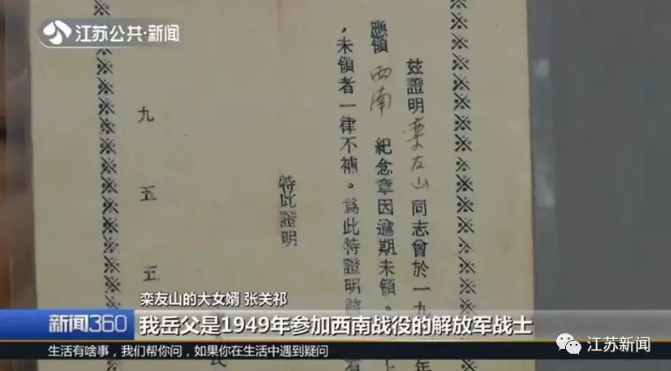 江苏公共·新闻
茲證明栾友山同志曾於一九
年
應領西南紀念章因逾期未領。
未領者一律不補。爲此特證明
特此證明
九五五
民
栾友山的大女婿 张关祁
新闻360
我岳父是1949年参加西南战役的解放军战士
生活有啥事，我们帮你问，如果你在生活中遇到疑问
江苏新闻